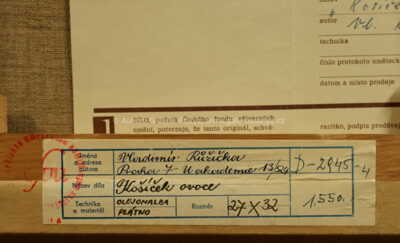 Košíč
autor
technika
číslo protokolu umělecké
datum a místo prodeje
DÍLO, podnik Českého fondu výtvarných
umění, potvrzuje, že tento originál, schvá-
razítko, podpis prodávají
Jméno a adresa autora
Vlastimil Růžička
Praha 7 - U akademie 13/524
D-2945-4
Název díla
Košíček ovoce
Technika a materiál
OLEJOMALBA
PLÁTNO
Rozměr
27 X 32
1.550.-